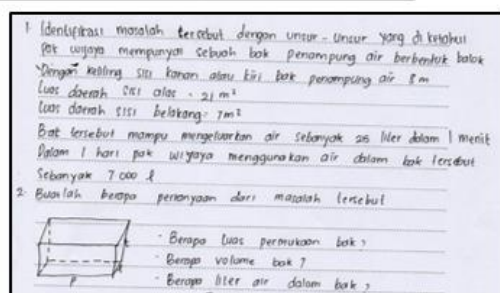 1. Identifikasi masalah tersebut dengan unsur - unsur yang di ketahui
Pak wijaya mempunyai sebuah bak penampung air berbentuk balok
Dengan keliling sisi kanan atau kiri bak penampung air 8 m
Luas daerah sisi alas = 21 m²
Luas daerah sisi belakang = 7m²
Bak tersebut mampu mengeluarkan air sebanyak 25 liter dalam 1 menit
Dalam 1 hari pak wijaya menggunakan air dalam bak tersebut
Sebanyak 7 000 l
2. Buatlah berapa pertanyaan dari masalah tersebut
- Berapa luas permukaan bak ?
- Berapa volume bak ?
- Berapa liter air dalam bak ?
P